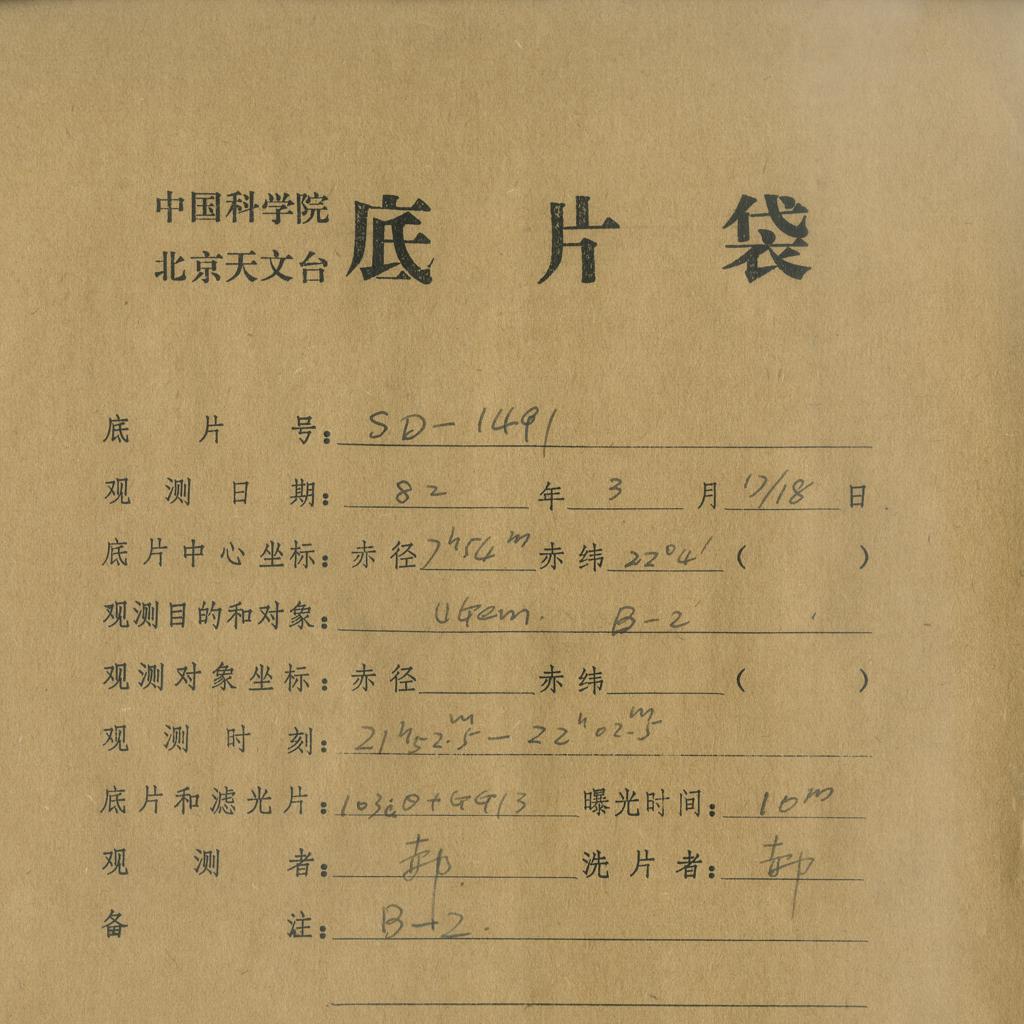 中国科学院
北京天文台
底片袋
底片号：SD-1491
观测日期：82年3月17/18日
底片中心坐标：赤径7ʰ54ᵐ赤纬22°4′（ ）
观测目的和对象：UGem. B-2
观测对象坐标：赤径 赤纬 （ ）
观测时刻：21ʰ52ᵐ.5—22ʰ02ᵐ.5
底片和滤光片：103aO+GG13 曝光时间：10ᵐ
观测者：郝 洗片者：郝
备注：B-2.